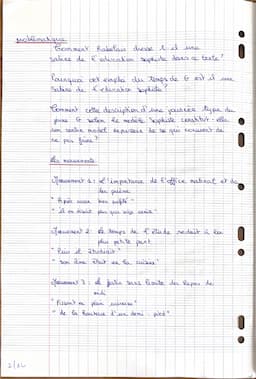 problématique
Comment Rabelais dresse t-il une
satire de l'éducation sophiste dans ce texte?
Pourquoi cet emploi du temps de G est il une
Satire de l'éducation sophiste?
Comment cette description d'une journée type du
jeune G selon le modèle sophiste constitue elle
un contre model de ce qui convient de
ne pas faire?
Les mouvements
Mouvement 1: l'importance de l'office matinal et de
la prière
"Après avoir bien
Mouvement 2: le temps de l'étude réduit à la
plus petite part
"Puis il étudiait"
"son âme était en la cuisine"
Mouvement 3: le festin sans limite du repos de
midi
"Pissant un plein urinoir"
"de la hauteur d'un demi-pied"